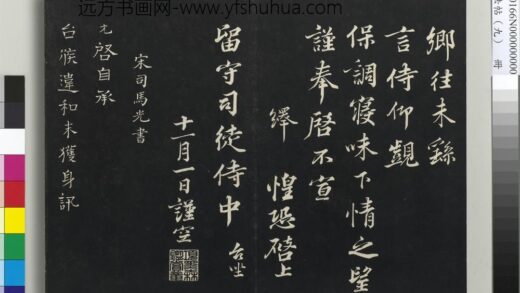 远方书画网-www.yfshuhua.com
鄉往未繇
言侍仰覬
保調寢味下情之望
謹奉啓不宣
繹 惶恐啓上
留守司徒侍中 台坐
十一月一日謹空
宋司馬光書
光啓自承
台候違和未獲身訊
0166N000000000
帖（九） 册